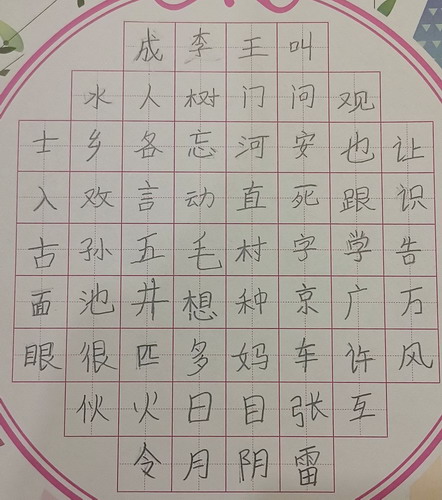 成李王叫
水人树门问观
士乡各忘河安也让
入欢言动直死跟识
古孙五毛村字学告
面池井想种京广万
眼很匹多妈车许风
伙火日目张互
令月阴雷